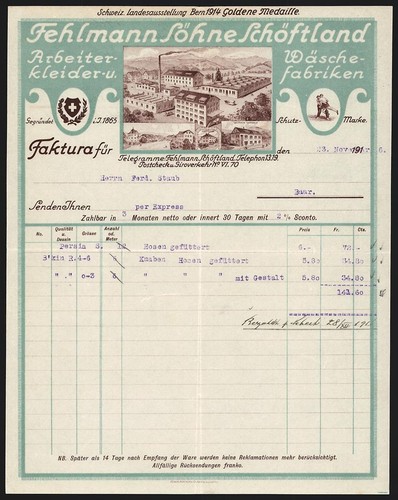 Schweiz. Landesausstellung Bern 1914 Goldene Medaille.
Fehlmann Söhne Schöftland
Arbeiter- Wäsche-
kleider-u. fabriken
Gegründet i.J. 1865 Schutz- Marke.
Faktura für den 23. November 191 6.
Telegramme: Fehlmann, Schöftland. Telephon 1319.
Postcheck u. Giroverkehr No VI. 70
Herrn Ferd. Staub
Baar.
Senden Ihnen per Express
Zahlbar in 3 Monaten netto oder innert 30 Tagen mit 2 % Sconto.
No. Qualität u. Dessin Grösse Anzahl od. Meter Preis Fr. Cts.
Persia S. 12 Hosen gefüttert 6.- 72.-
B'kin R. 4-6 6 Knaben Hosen gefüttert 5.80 34.80
" " 0-3 6 " " mit Gestalt 5.80 34.80
141.60
NB. Später als 14 Tage nach Empfang der Ware werden keine Reklamationen mehr berücksichtigt.
Allfällige Rücksendungen franko.